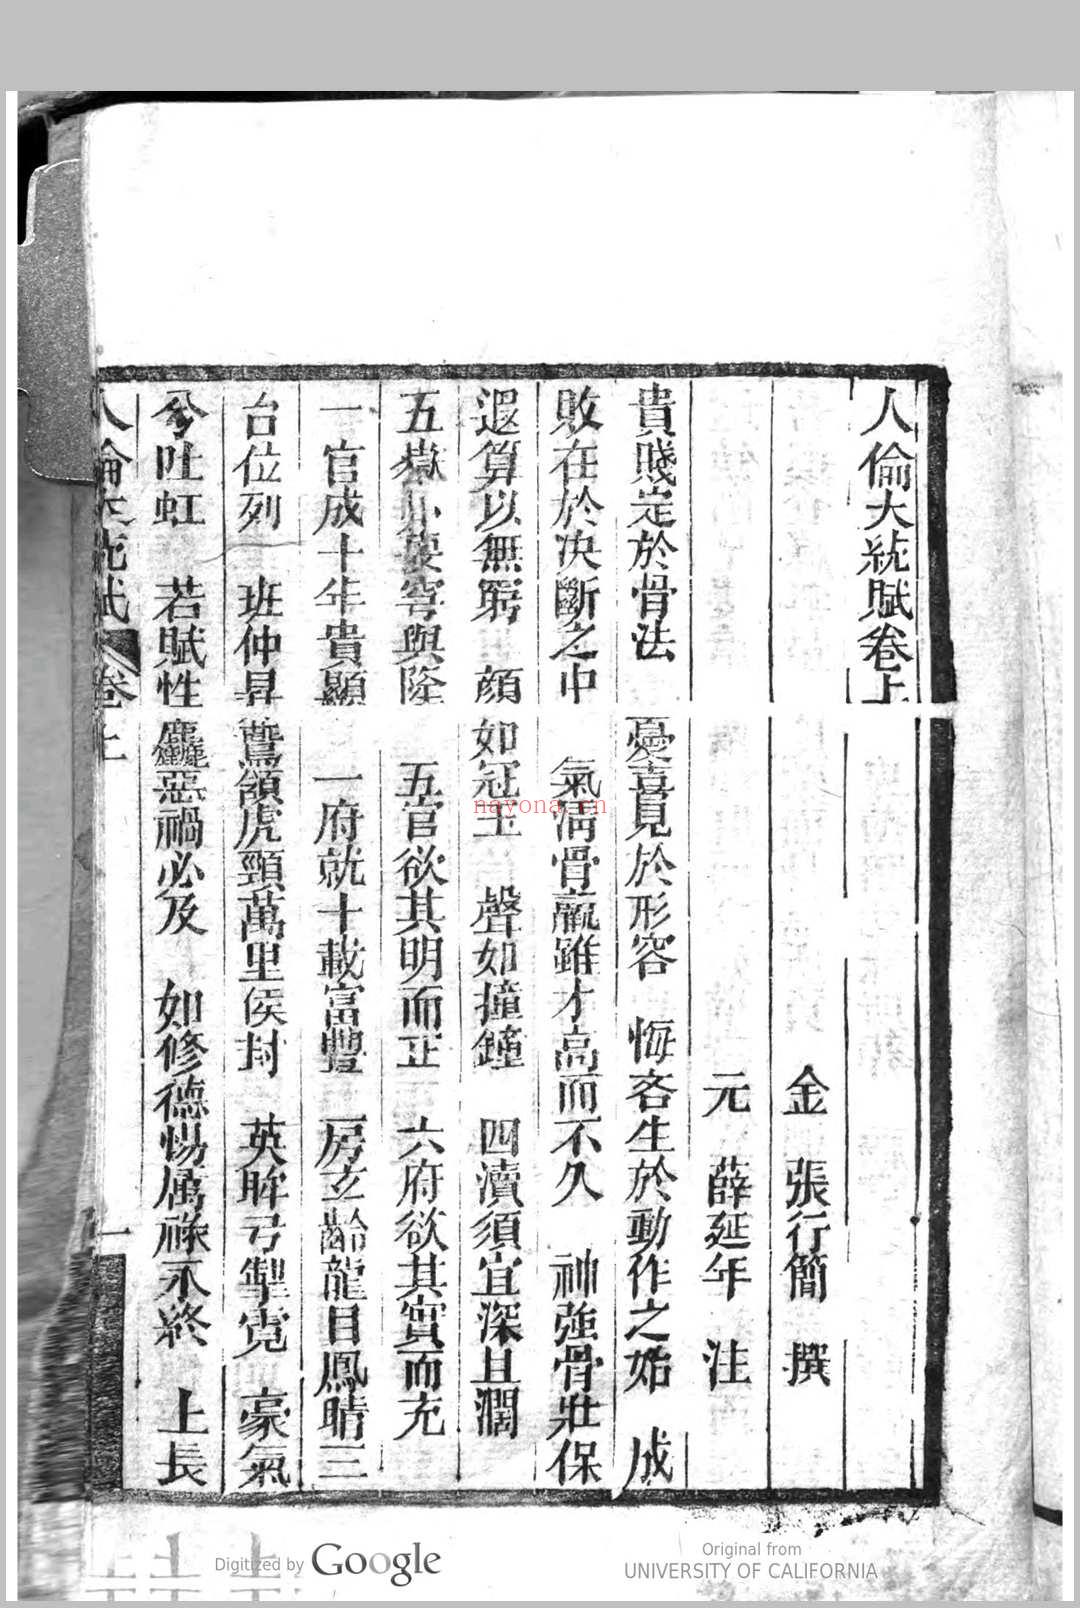 人倫大統賦卷上
金　張行簡　撰
元　薛延年　注
貴賤定於骨法　憂喜見於形容　悔吝生於動作之始　成
敗在於决斷之中　氣清骨羸雖才高而不久　神強骨壯保
遐算以無窮　顔如冠玉　聲如撞鐘　四瀆須宜深且濶
五嶽必要穹與隆　五官欲其明而正　六府欲其實而充
一官成十年貴顯　一府就十載富豐　房玄齡龍目鳳睛三
台位列　班仲昇鷰頷虎頸萬里侯封　英眸弓掣霓　豪氣
兮吐虹　若賦性麤惡禍必及　如修德惕厲祿永終　上長
人倫大統賦　卷上　一
nayona.cn
Digitized by Google
Original from
UNIVERSITY OF CALIFORNIA